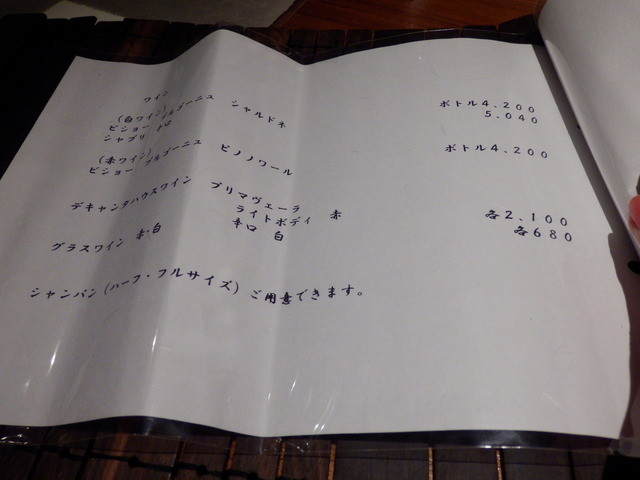 ワイン
(白ワイン)
ビショー ブルゴーニュ シャルドネ ボトル4.200
シャブリ 辛口 5.040
(赤ワイン)
ビショー ブルゴーニュ ピノノワール ボトル4.200
デキャンタハウスワイン プリマヴェーラ
ライトボディ 赤 各2.100
辛口 白 各680
グラスワイン 赤・白
シャンパン(ハーフ・フルサイズ)ご用意できます。